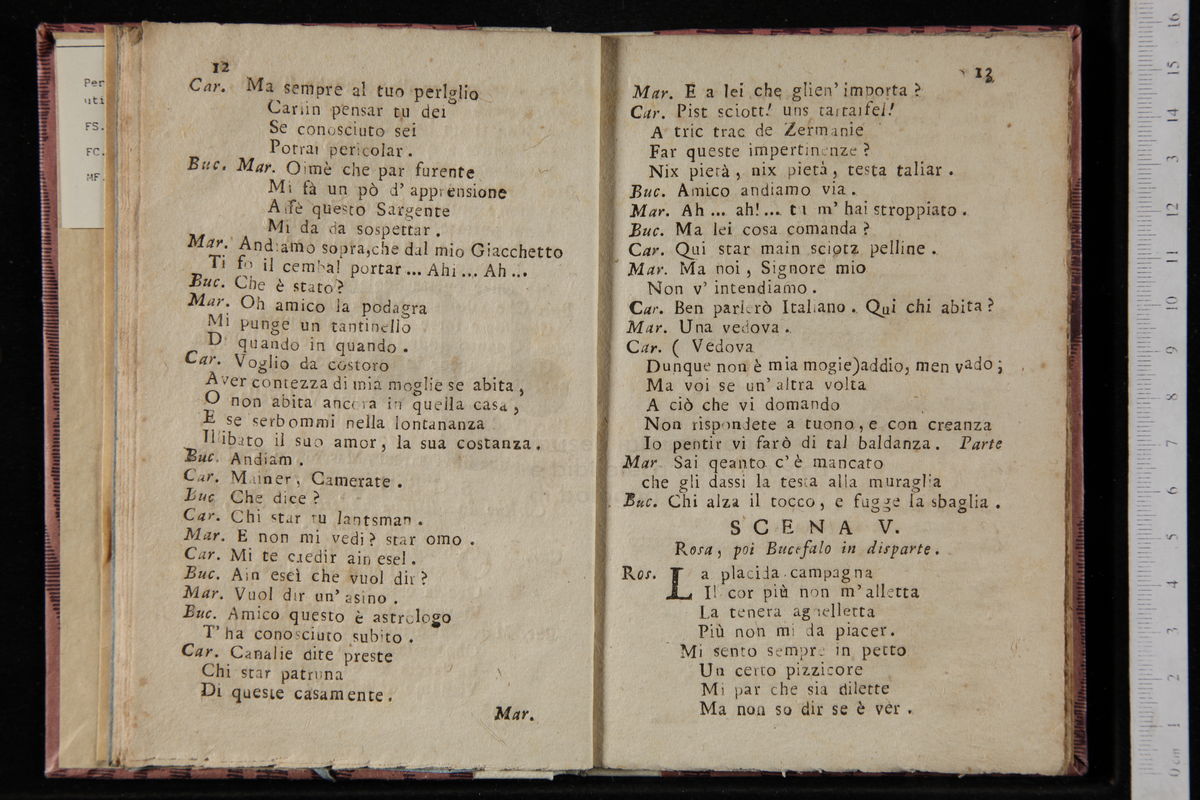 12
Car. Ma sempre al tuo periglio
Carlin pensar tu dei
Se conosciuto sei
Potrai pericolar.
Buc. Mar. Oimè che par furente
Mi fà un pò d' apprensione
Affè questo Sargente
Mi da da sospettar.
Mar. Andiamo sopra,che dal mio Giacchetto
Ti fo il cembal portar ... Ahi ... Ah ...
Buc. Che è stato?
Mar. Oh amico la podagra
Mi punge un tantinello
Di quando in quando.
Car. Voglio da costoro
Aver contezza di mia moglie se abita,
O non abita ancora in quella casa,
E se serbommi nella lontananza
Illibato il suo amor, la sua costanza.
Buc. Andiam.
Car. Mainer, Camerate.
Buc Che dice?
Car. Chi star tu lantsman.
Mar. E non mi vedi? star omo.
Car. Mi te credir ain esel.
Buc. Ain esel che vuol dir?
Mar. Vuol dir un' asino.
Buc. Amico questo è astrologo
T' ha conosciuto subito.
Car. Canalie dite preste
Chi star patruna
Di queste casamente.
Mar.
13
Mar. E a lei che glien' importa?
Car. Pist sciott! uns tartaifel!
A tric trac de Zermanie
Far queste impertinenze?
Nix pietà, nix pietà, testa taliar.
Buc. Amico andiamo via.
Mar. Ah ... ah! ... tu m' hai stroppiato.
Buc. Ma lei cosa comanda?
Car. Qui star main sciotz pelline.
Mar. Ma noi, Signore mio
Non v' intendiamo.
Car. Ben parlerò Italiano. Qui chi abita?
Mar. Una vedova.
Car. ( Vedova
Dunque non è mia mogie)addio, men vado;
Ma voi se un' altra volta
A ciò che vi domando
Non rispondete a tuono, e con creanza
Io pentir vi farò di tal baldanza. Parte
Mar Sai qeanto c' è mancato
che gli dassi la testa alla muraglia
Buc. Chi alza il tocco, e fugge la sbaglia.
SCENA V.
Rosa, poi Bucefalo in disparte.
Ros. La placida campagna
Il cor più non m' alletta
La tenera agnelletta
Più non mi da piacer.
Mi sento sempre in petto
Un certo pizzicore
Mi par che sia dilette
Ma non so dir se è ver.
Per
uti
FS.
FC.
MF.
0 cm 1 2 3 4 5 6 7 8 9 10 11 12 13 14 15 16